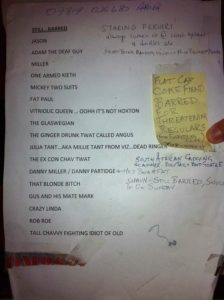 STILL BARRED
STARING PERVERT
always comes in @ lunch
JASON
ADAM THE DEAF GUY
MILLER
ONE ARMED KIETH
MICKEY TWO SUITS
FAT PAUL
VITRIOLIC QUEEN ... OOHH IT'S NOT HOXTON
THE GLASWEGIAN
THE GINGER DRUNK TWAT CALLED ANGUS
JULIA TANT...AKA MILLIE TANT FROM VIZ..DEAD RINGER
THE EX CON CHAV TWAT
DANNY MILLER / DANNY PARTIDGE
THAT BLONDE BITCH
GUS AND HIS MATE MARK
CRAZY LINDA
ROB ROE
TALL CHAVVY FIGHTING IDIOT OF OLD
FLAT CAP
COKE FIEND
BARRED
FOR
THREATENING
REGULARS
SOUTH AFRICAN
SHAUN - STILL BARRED,
ON SUNDAY